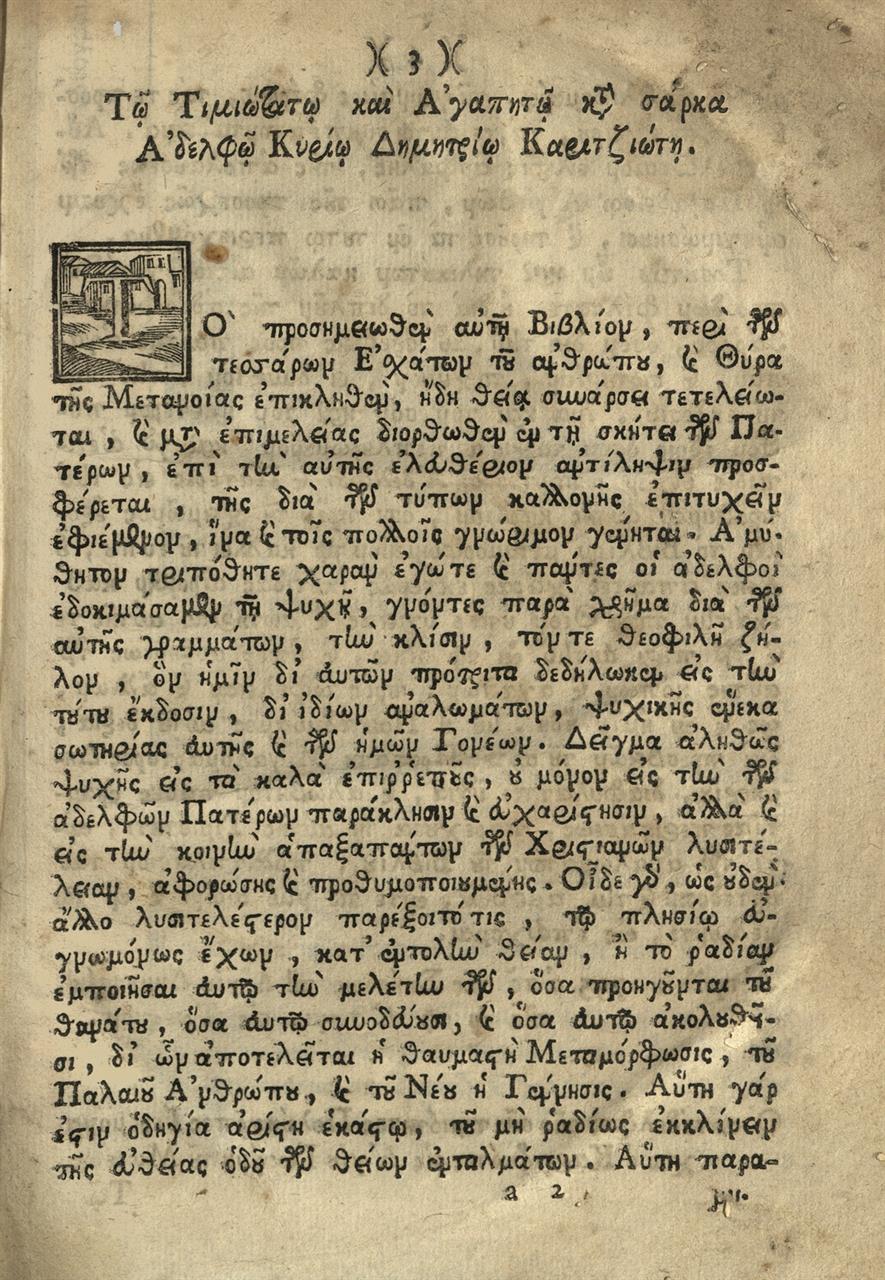 )( 3 )(
Τῷ Τιμιωτάτῳ καὶ Ἀγαπητῷ κτ̀ σάρκα
Ἀδελφῷ Κυρίῳ Δημητρίῳ Καριτζιώτῃ.
Ὸ προσημειωθὲν αὐτῇ Βιβλίον, περὶ τῶν
τεσσάρων Ἐσχάτων τοῦ ἀνθρώπου, ϗ Θύρα
τῆς Μετανοίας ἐπικληθὲν, ἤδη θείᾳ συνάρσει τετελείω-
ται, ϗ μτ̀ ἐπιμελείας διορθωθὲν ἐν τῇ σκήτει τῶν Πα-
τέρων, ἐπὶ τὴν αὐτῆς ἐλευθέριον ἀντίληψιν προσ-
φέρεται, τῆς διὰ τῶν τύπων καλλονῆς ἐπιτυχεῖν
ἐφιέμενον, ἵνα ϗ τοῖς πολλοῖς γνώριμον γένηται. Ἀμύ-
θητον τριπόθητε χαρὰν ἐγώτε ϗ πάντες οἱ ἀδελφοὶ
ἐδοκιμάσαμεν τῇ ψυχῇ, γνόντες παρὰ χρῆμα διὰ τῶν
αὐτῆς γραμμάτων, τὴν κλίσιν, τόν τε θεοφιλῆ ζῆ-
λον, ὃν ἡμῖν δι' αὐτῶν πρότριτα δεδήλωκεν εἰς τὴν
τούτου ἔκδοσιν, δι' ἰδίων ἀναλωμάτων, ψυχικῆς ἕνεκα
σωτηρίας αὐτῆς ϗ τῶν ἡμῶν Γονέων. Δεῖγμα ἀληθῶς
ψυχῆς εἰς τὰ καλὰ ἐπιῤῥεποῦς, οὐ μόνον εἰς τὴν τῶν
ἀδελφῶν Πατέρων παράκλησιν ϗ εὐχαρίστησιν, ἀλλὰ ϗ
εἰς τὴν κοινὴν ἁπαξαπάντων τῶν Χριστιανῶν λυσιτέ-
λειαν, ἀφορώσης ϗ προθυμοποιουμένης. Οἶδε γὰρ, ὡς οὐδὲν
ἄλλο λυσιτελέστερον παρέξοιτό τις, τῷ πλησίῳ εὐ-
γνωμόνως ἔχων, κατ' ἐντολὴν θείαν, ἢ τὸ ῥαδίαν
ἐμποιῆσαι αὐτῷ τὴν μελέτην τῶν, ὅσα προηγοῦνται τοῦ
θανάτου, ὅσα αὐτῷ συνοδεύουσι, ϗ ὅσα αὐτῷ ἀκολουθοῦ-
σι, δι' ὧν ἀποτελεῖται ἡ θαυμαστὴ Μεταμόρφωσις, τοῦ
Παλαιοῦ Ἀνθρώπου, ϗ τοῦ Νέου ἡ Γέννησις. Αὕτη γάρ
ἐστιν ὁδηγία ἀρίστη ἑκάστῳ, τοῦ μὴ ῥαδίως ἐκκλίνειν
τῆς εὐθείας ὁδοῦ τῶν θείων ἐνταλμάτων. Αὕτη παρα-
a 2